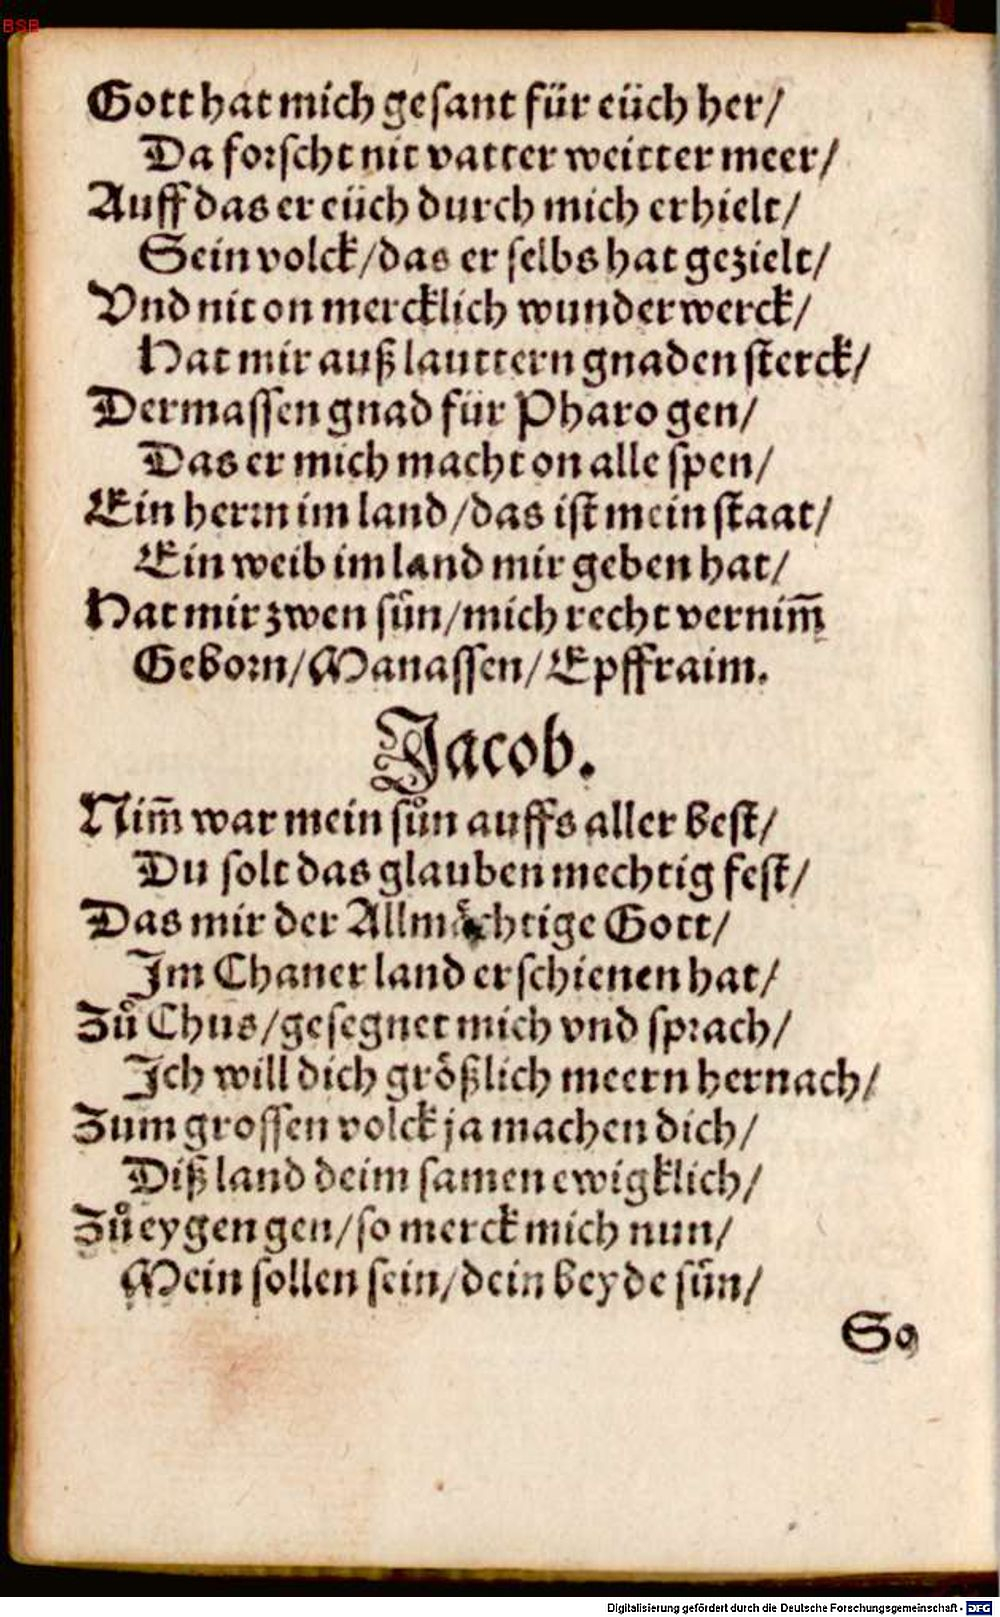 BSB
Gott hat mich gesant für eüch her/
Da forscht nit vatter weitter meer/
Auff das er eüch durch mich erhielt/
Sein volck/das er selbs hat gezielt/
Vnd nit on mercklich wunderwerck/
Hat mir auß lauttern gnaden sterck/
Dermassen gnad für Pharo gen/
Das er mich macht on alle spen/
Ein herrn im land/das ist mein staat/
Ein weib im land mir geben hat/
Hat mir zwen sün/mich recht vernim̃
Geborn/Manassen/Epffraim.
Jacob.
Nim̃ war mein sůn auffs aller best/
Du solt das glauben mechtig fest/
Das mir der Allmächtige Gott/
Im Chaner land erschienen hat/
Zů Chus/gesegnet mich vnd sprach/
Ich will dich größlich meern hernach/
Zum grossen volck ja machen dich/
Diß land deim samen ewigklich/
Zů eygen gen/so merck mich nun/
Mein sollen sein/dein beyde sün/
So
Digitalisierung gefördert durch die Deutsche Forschungsgemeinschaft - DFG